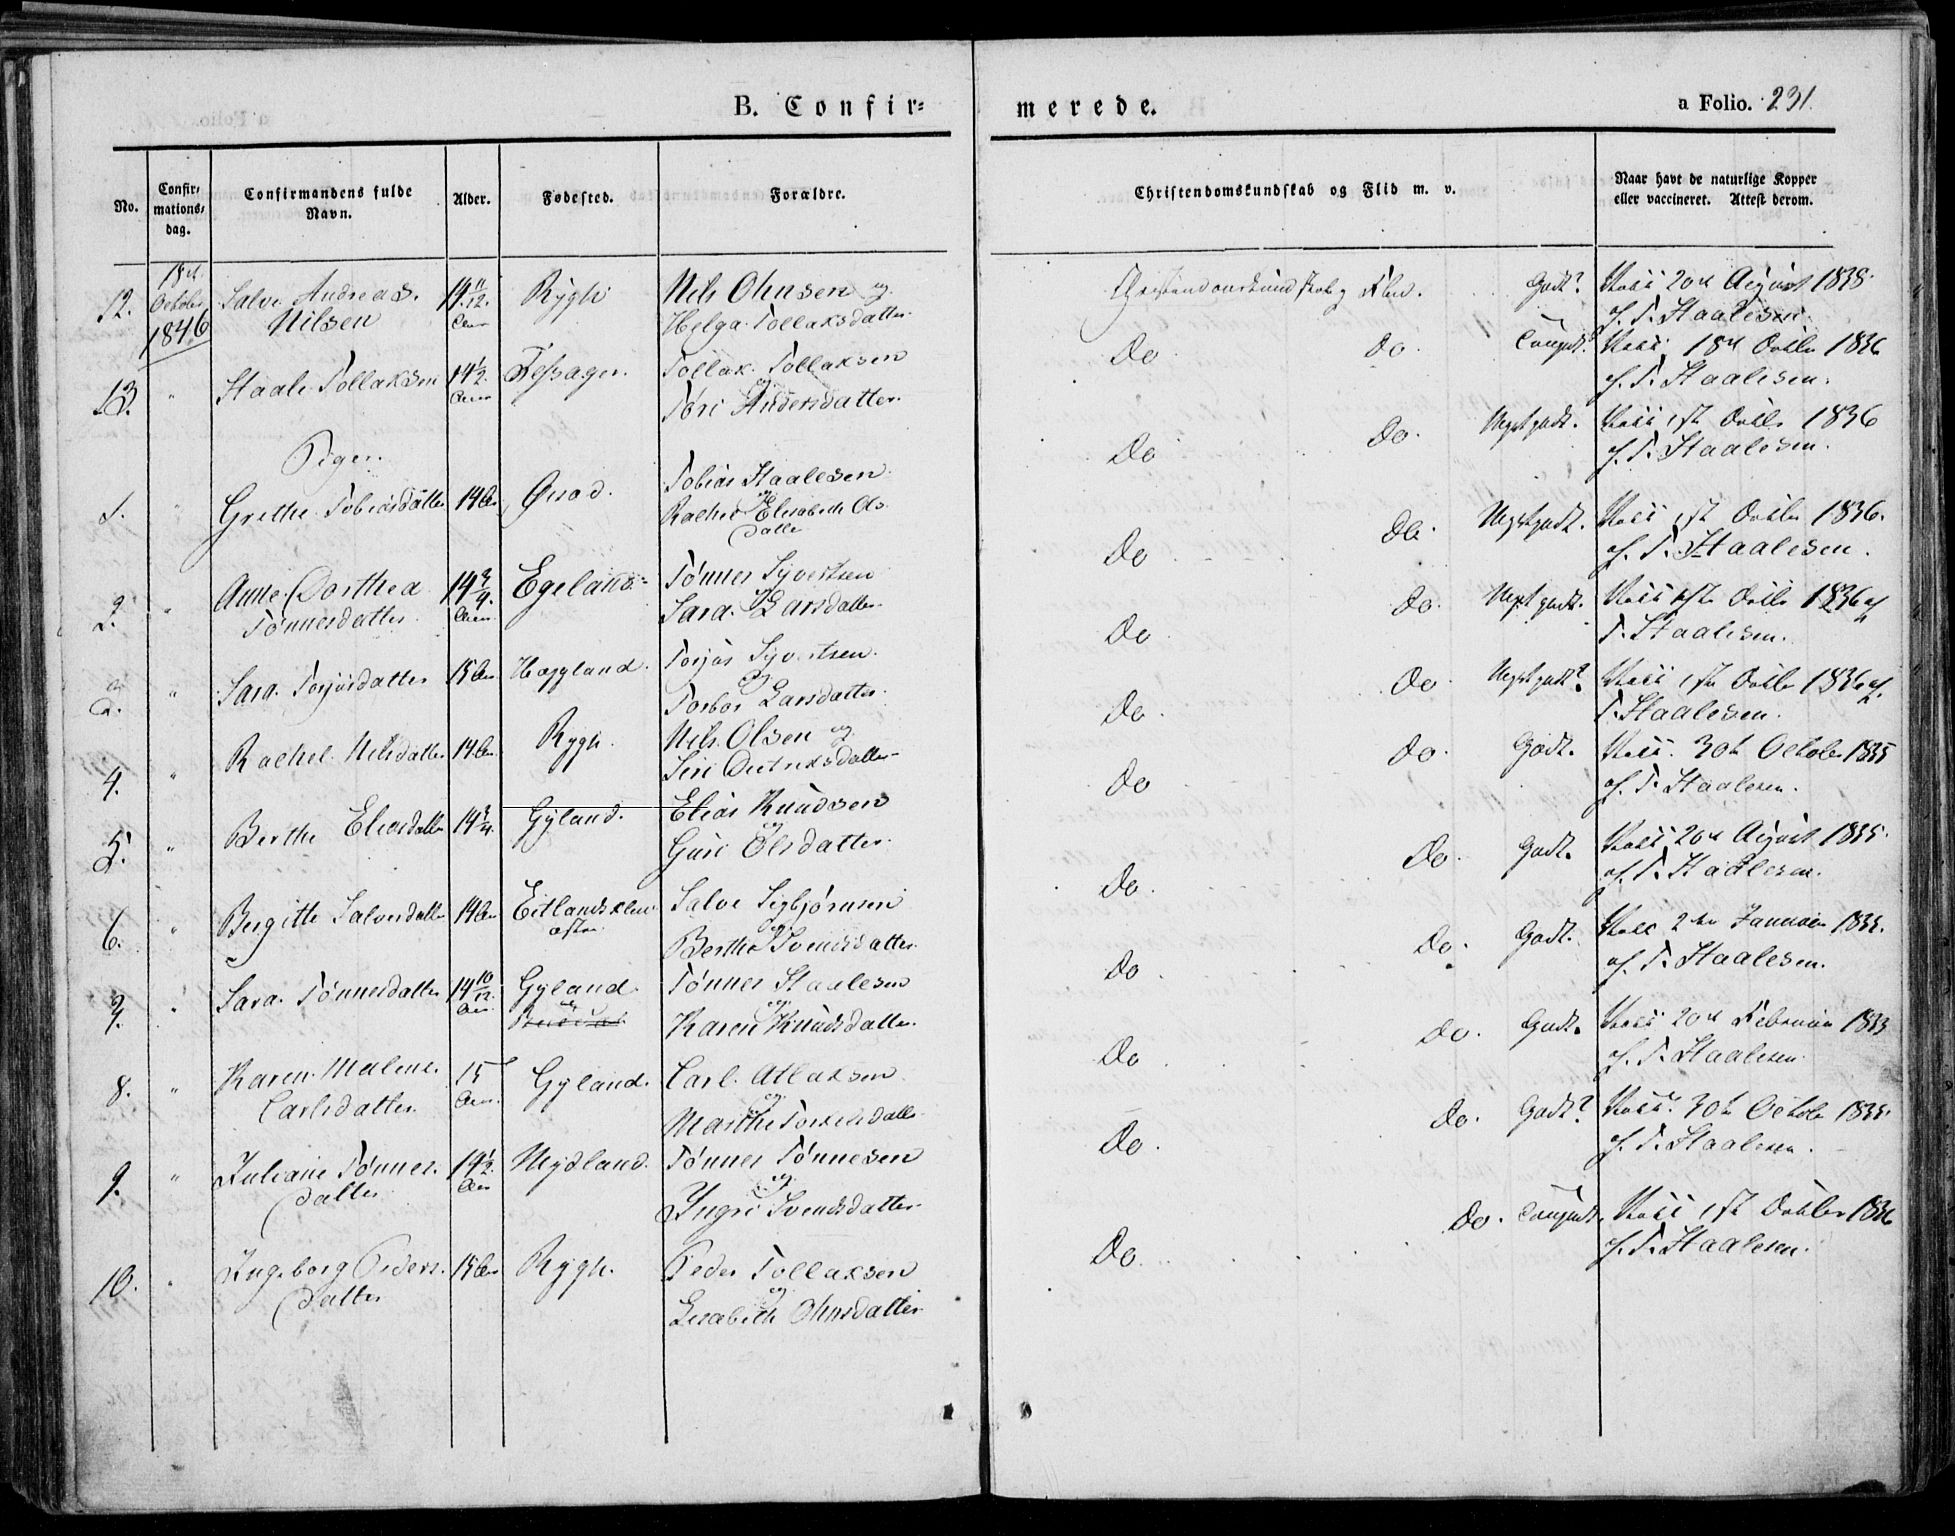 B. Confir=
merede.
a Folio. 231.
No.
Confir,
mations,
dag.
Confirmandens fulde
Navn.
Alder.
Fødested.
Forældre.
Christendomskundskab og Flid m. v.
Naar havt de naturlige Kopper
eller vaccineret. Attest derom.
12.
18de
October
1846
Salve Andreas.
Nilsen
14 11/12.
Aar
Rygh
Nils Ohnsen og
Helga Tollaksdatter.
Christendomskundskab og Flid.
Godt?
Vacc 20de August 1838.
af. T. Staalesen.
13.
"
Staale Tollaksen
14 1/2.
Aar
Tessager.
Tollak. Tollaksen
og
Tøri Andersdatter.
Do
Do
Vacc. 18de Octbr 1836
af. T. Staalesen.
Piger.
1.
"
Grethe Tobiasdatter
14 Aar
Qvad.
Tobias Staalesen
og
Rachel Elisabeth Ols
datter
Do
Do.
Meget godt.
Vacc 1ste Octbr 1836
af. T. Staalesen.
2.
"
Anne Dorthea
Tønnesdatter
14 3/4.
Aar
Egeland
Tønnes Syvertsen
og
Sara Larsdatter
Do
Do.
Meget godt.
Vacc 1ste Octbr 1836.
af. T. Staalesen.
3.
"
Sara Torjusdatter
15 Aar
Hægland.
Torjus Syvertsen.
og
Torbor Larsdatter.
Do
Do.
Meget godt.
Vacc 1ste Octbr 1836 af
T. Staalesen.
4.
"
Rachel Nilsdatter
14 Aar
Rygh.
Nils Olsen og
Siri Omundsdatter
Do.
Do
Meget godt?
Vacc 1ste Octbr 1836 af.
T. Staalesen.
5.
"
Berthe Eliasdatter
14 3/4.
Gyland.
Elias Knudsen
og
Guri Olsdatter.
Do
Do.
Godt.
Vacc. 30te October 1835
af. T. Staalesen.
6.
"
Bergitte Salvesdatter
14 Aar
Eitlandskleiv
østre.
Salve Sigbjørnsen
og
Berthe Svendsdatter
Do.
Do.
Godt.
Vacc 20de August 1835.
af. T. Staalesen.
7.
"
Sara Tønnesdatter
14 10/12
Aar.
Gyland.
Tønnes Staalesen
og
Karen Knudsdatter.
Do
Do.
Godt.
Vacc 2den Januar 1835.
af. T. Staalesen.
8.
"
Karen Malene
Carlsdatter.
15
Aar.
Gyland.
Carl Atlaksen
og
Marthe Torkelsdatter
Do
Do.
Godt.
Vacc 20de Februar 1833
af. T. Staalesen.
9.
"
Juliane Tønnes.
datter
14 1/2.
Aar
Mydland.
Tønnes Tønnesen
og.
Yngri Svendsdatter.
Do.
Do.
Godt?
Vacc. 30te October 1835.
af. T. Staalesen.
10.
"
Ingeborg Peders.
datter
15 Aar
Rygh.
Peder Tollaksen
og
Lisabeth Ohnsdatter
Do.
Do.
Vacc 1ste Octbr 1836
af. T. Staalesen.